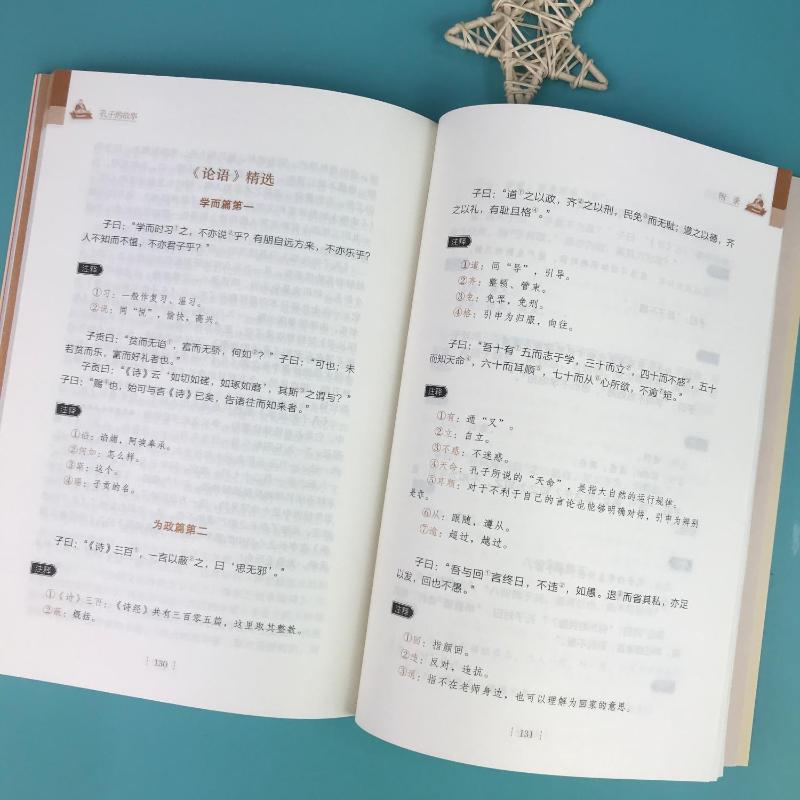 孔子的故事
《论语》精选
学而篇第一
子曰：“学而时习①之，不亦说②乎？有朋自远方来，不亦乐乎？
人不知而不愠，不亦君子乎？”
注释
①习：一般作复习、温习。
②说：同“悦”，愉快，高兴。
子贡曰：“贫而无谄①，富而无骄，何如②？”子曰：“可也；未
若贫而乐，富而好礼者也。”
子贡曰：“《诗》云‘如切如磋，如琢如磨’，其斯③之谓与？”
子曰：“赐④也，始可与言《诗》已矣，告诸往而知来者。”
注释
①谄：谄媚，阿谀奉承。
②何如：怎么样。
③斯：这个。
④赐：子贡的名。
为政篇第二
子曰：“《诗》三百①，一言以蔽②之，曰‘思无邪’。”
注释
①《诗》三百：《诗经》共有三百零五篇，这里取其整数。
②蔽：概括。
130
附 录
子曰：“道①之以政，齐②之以刑，民免③而无耻；道之以德，齐
之以礼，有耻且格④。”
注释
①道：同“导”，引导。
②齐：整顿、管束。
③免：免罪，免刑。
④格：引申为归服，向往。
子曰：“吾十有①五而志于学，三十而立②，四十而不惑③，五十
而知天命④，六十而耳顺⑤，七十而从⑥心所欲，不逾⑦矩。”
注释
①有：通“又”。
②立：自立。
③不惑：不迷惑。
④天命：孔子所说的“天命”，是指大自然的运行规律。
⑤耳顺：对于不利于自己的言论也能够明确对待，引申为辨别
是非。
⑥从：跟随，遵从。
⑦逾：超过，越过。
子曰：“吾与回①言终日，不违②，如愚。退③而省其私，亦足
以发，回也不愚。”
注释
①回：指颜回。
②违：反对，违抗。
③退：指不在老师身边，也可以理解为回家的意思。
131